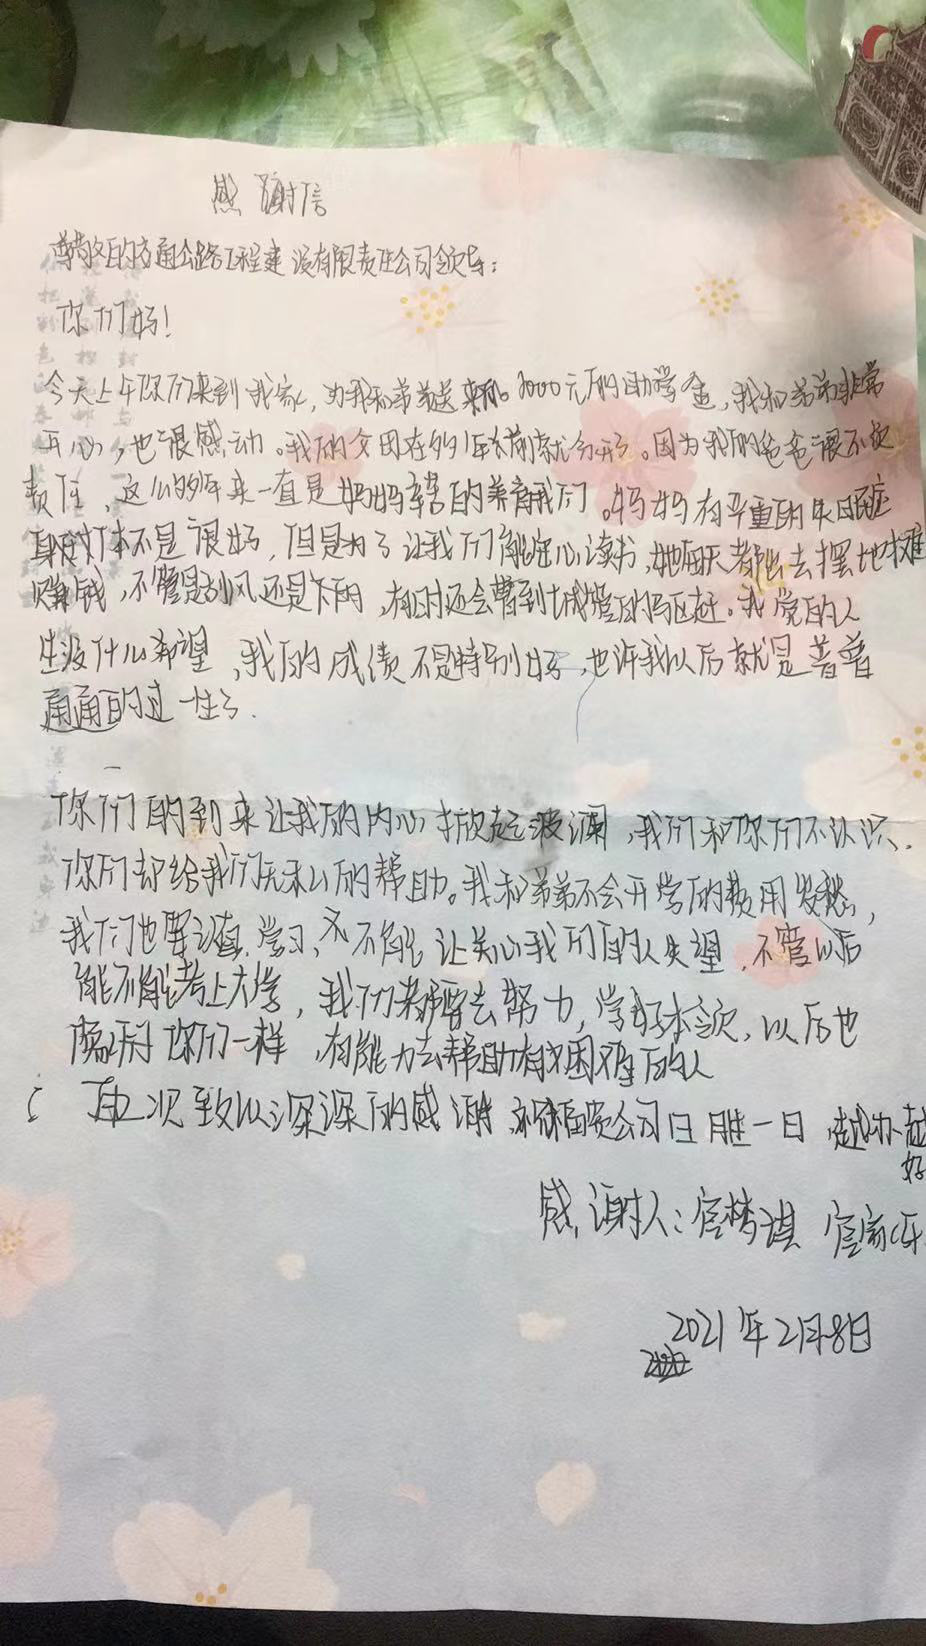 感谢信
尊敬的交通公路工程建设有限责任公司领导：
你们好！
今天上午你们来到我家，为我和弟弟送来 2000元的助学金，我和弟弟非常
开心，也很感动。我的父母在多年前就分开。因为我的爸爸很不负
责任，这么多年来一直是妈妈辛苦的养育我们。妈妈有严重的失眠症
身体不是很好，但是为了让我们能安心读书，她每天都出去摆地摊
赚钱，不管是刮风还是下雨，有时还会遭到城管的驱赶。我觉的人
生没什么希望，我的成绩不是特别好，也许我以后就是普普
通通的过一生了.
你们的到来让我的内心掀起波澜，我们和你们不认识.
你们却给我们无私的帮助。我和弟弟不会开学的费用发愁，
我们也要认真学习、不能让关心我们的人失望.不管以后
能不能考上大学，我们都要去努力，学好本领，以后也
像你们一样，有能力去帮助有困难的人
再次致以深深的感谢 祝福贵公司日胜一日，越办越
好
感谢人：官梦琪 官家乐
2021年2月8日